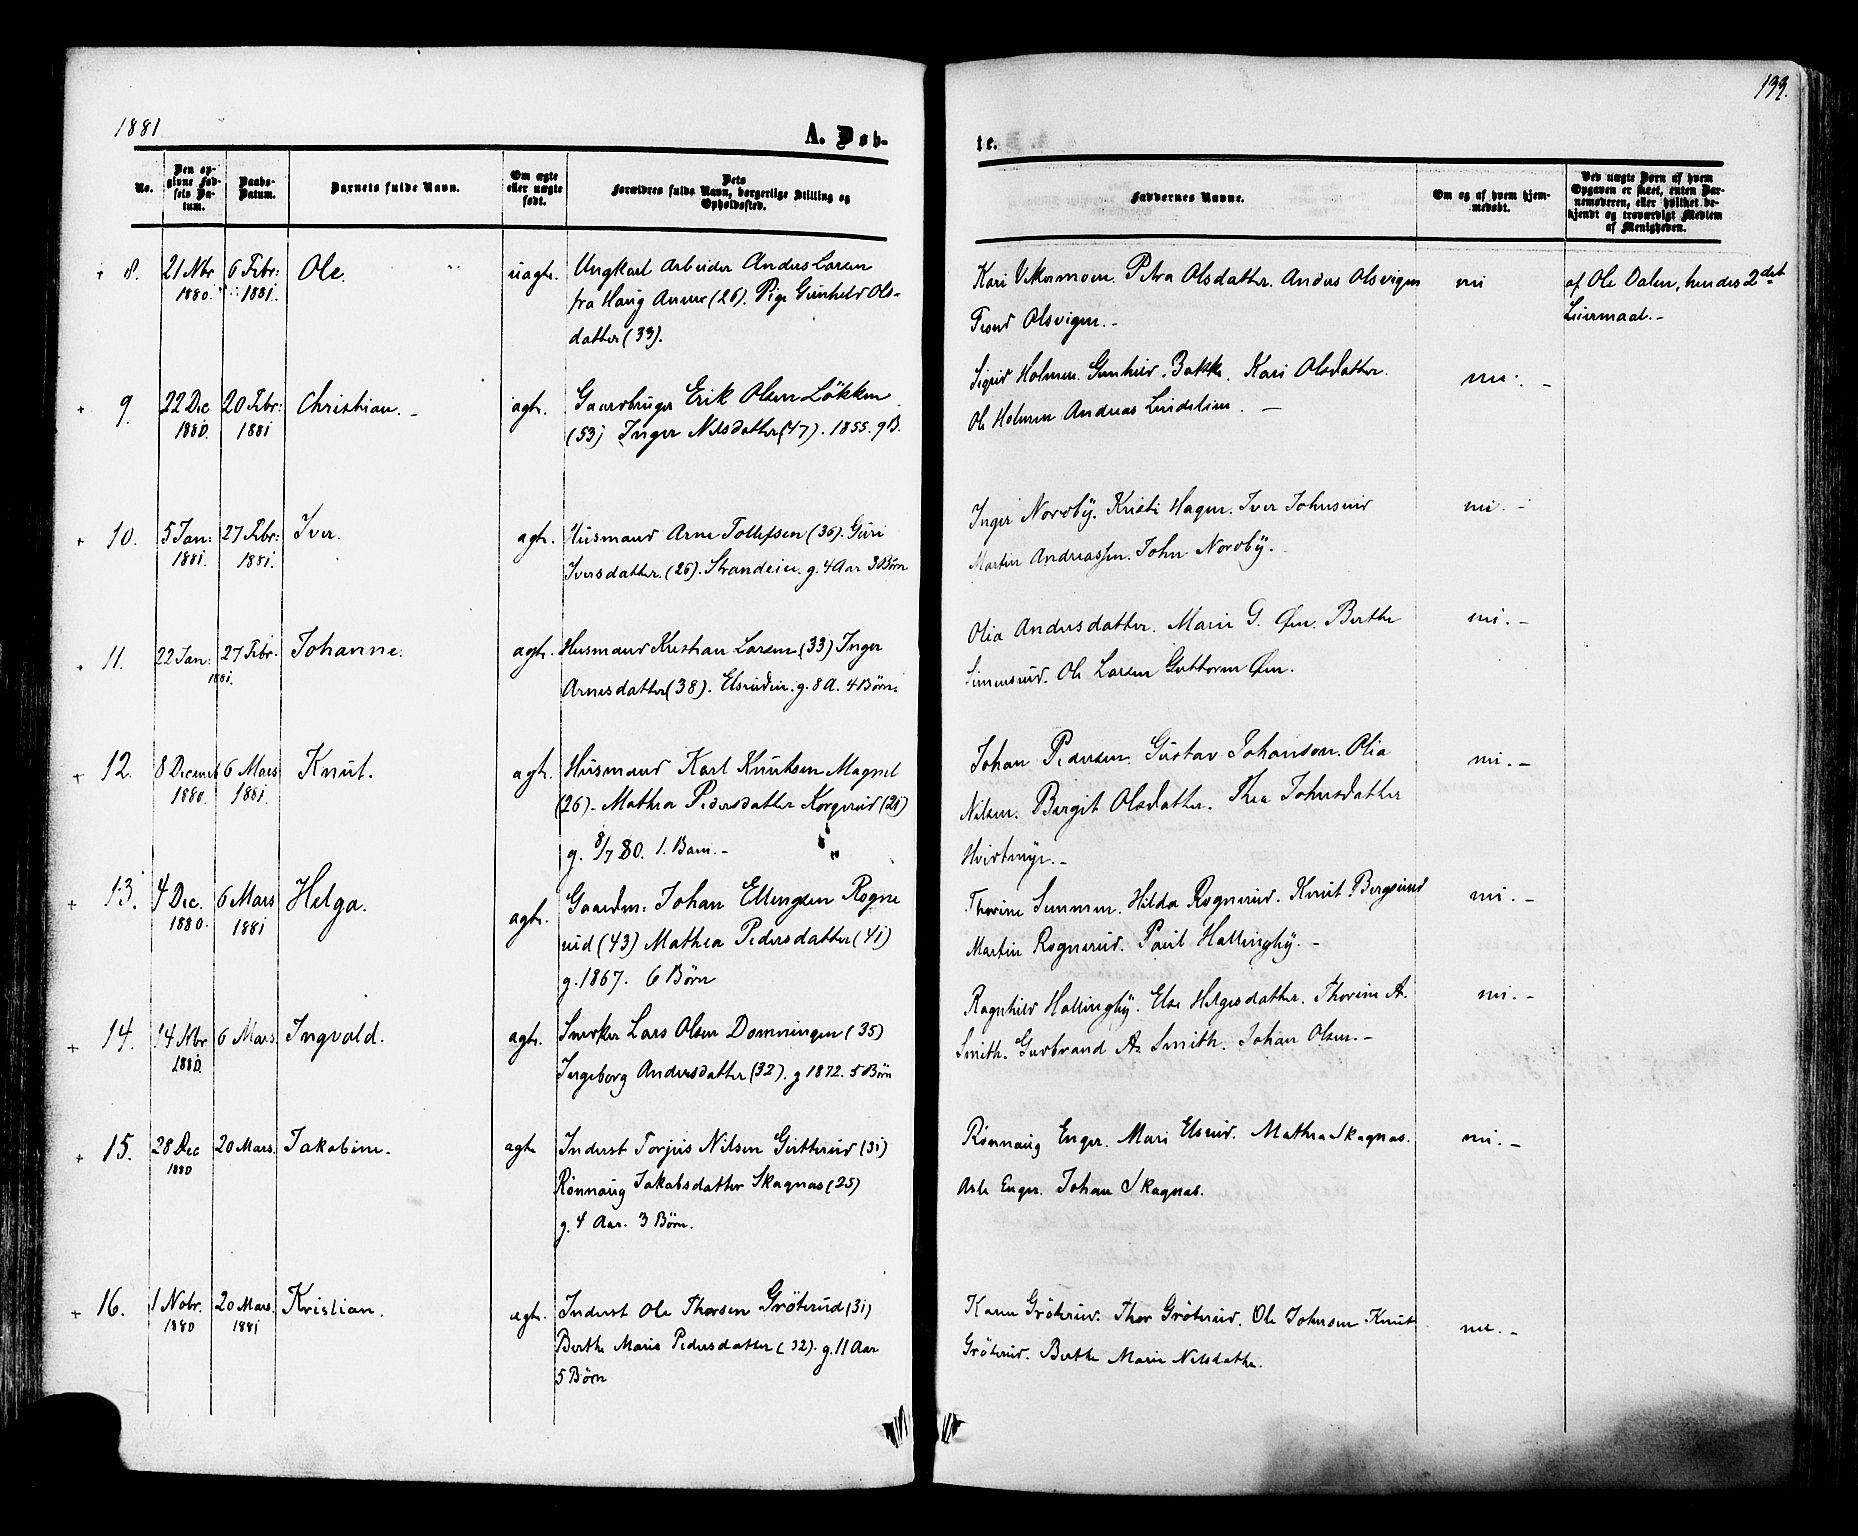 1881
199.
A. Døb-
te.
No.
Den op-
givne Fød-
sels Da-
tum.
Daabs-
Datum.
Barnets fulde Navn.
Om ægte
eller uægte
født.
Dets
Forældres fulde Navn, borgerlige Stilling og
Opholdssted.
Faddernes Navne.
Om og af hvem hjem-
medøbt.
Ved uægte Børn af hvem
Opgaven er skeet, enten Bar-
nemoderen, eller hvilket be-
kjendt og troværdigt Medlem
af Menigheden.
+ 8. 21 Nbr 6 Febr: Ole. uagte. Ungkarl Arbeider Anders Larsen
1880. 1881. fra Haug Annex (26). Pige Gunhild Ols-
datter (33).
Kari Vikermoen. Petra Olsdatter. Anders Olsvigen nei af Ole Dalen, hendes 2det
Trond Olsvigen. - Leiermaal. -
+ 9. 22 Dec 20 Febr: Christian. - agte. Gaardbruger Erik Olsen Løkken
1880. 1881 (53) Inger Nilsdatter (47). 1855. 9B.
Sigrid Holmen. Gunhild Bakke. Kari Olsdatter. nei. -
Ole Holmen Andreas Lindelien. -
+ 10. 5 Jan: 27 Febr: Iver. agte. Husmand Arne Tollefsen (36). Guri
1881. 1881. Iversdatter. (26). Strandeie. g. 4 Aar 3 Børn
Inger Nordby. Kristi Hagen. Iver Johnsrud nei. -
Martin Andreassen. John Nordby. -
+ 11. 22 Jan: 27 Febr. Johanne. agte. Husmand Kristian Larsen (33) Inger
1881. Arnesdatter (38). Elsrudeie. g. 8 A. 4 Børn.
Olia Andersdatter. Marie G. Øen. Berthe nei. -
Simensrud. Ole Larsen Guttorm Øen.
+ 12. 8 Decemb 6 Mars Knut. agte. Husmand Karl Knutsen Magnel
1880. 1881. (26). Mathea Pedersdatter Korgerud (21)
g. 8/7 80. 1. Barn. -
Johan Pedersen. Gustav Johansen. Olia nei. -
Nilsen. Birgit Olsdatter. Thea Johnsdatter
Hvitmyr. -
+ 13. 4 Dec. 6 Mars Helga. agte. Gaardm: Johan Ellingsen Rogne
1880. 1881 rud (43) Mathea Pedersdatter (41)
g. 1867. 6 Børn
Thorine Simmen. Hilda Rognerud. Knut Bergsund nei. -
Martin Rognerud. Paul Hallingby. -
+ 14. 14 Nbr 6 Mars. Ingvald. agte. Snerker Lars Olsen Domningen (35)
1880. Ingeborg Andersdatter (32). g 1872. 5 Børn
Ragnhild Hallingby. Else Helgesdatter. Thorine A. nei. -
Smith. Gulbrand A. Smith. Johan Olsen. -
+ 15. 28 Dec 20 Mars. Jakobine. agte Inderst Torjus Nilsen Gutterud (31)
1880 Rønnaug Jakobsdatter Skagnæs (25)
g. 4 Aar. 3 Børn.
Rønnaug Enger. Mari Elsrud. Mathea Skagnæs. nei. -
Asle Enger. Johan Skagnæs.
+ 16. 1 Nobr. 20 Mars. Kristian. agte. Inderst Ole Thorsen Grøterud (31)
1880 1881 Berthe Marie Pedersdatter (32). g. 11 Aar
5 Børn
Karen Grøterud. Thor Grøterud. Ole Johnsen Knut nei. -
Grøterud. Berthe Marie Nilsdatter.